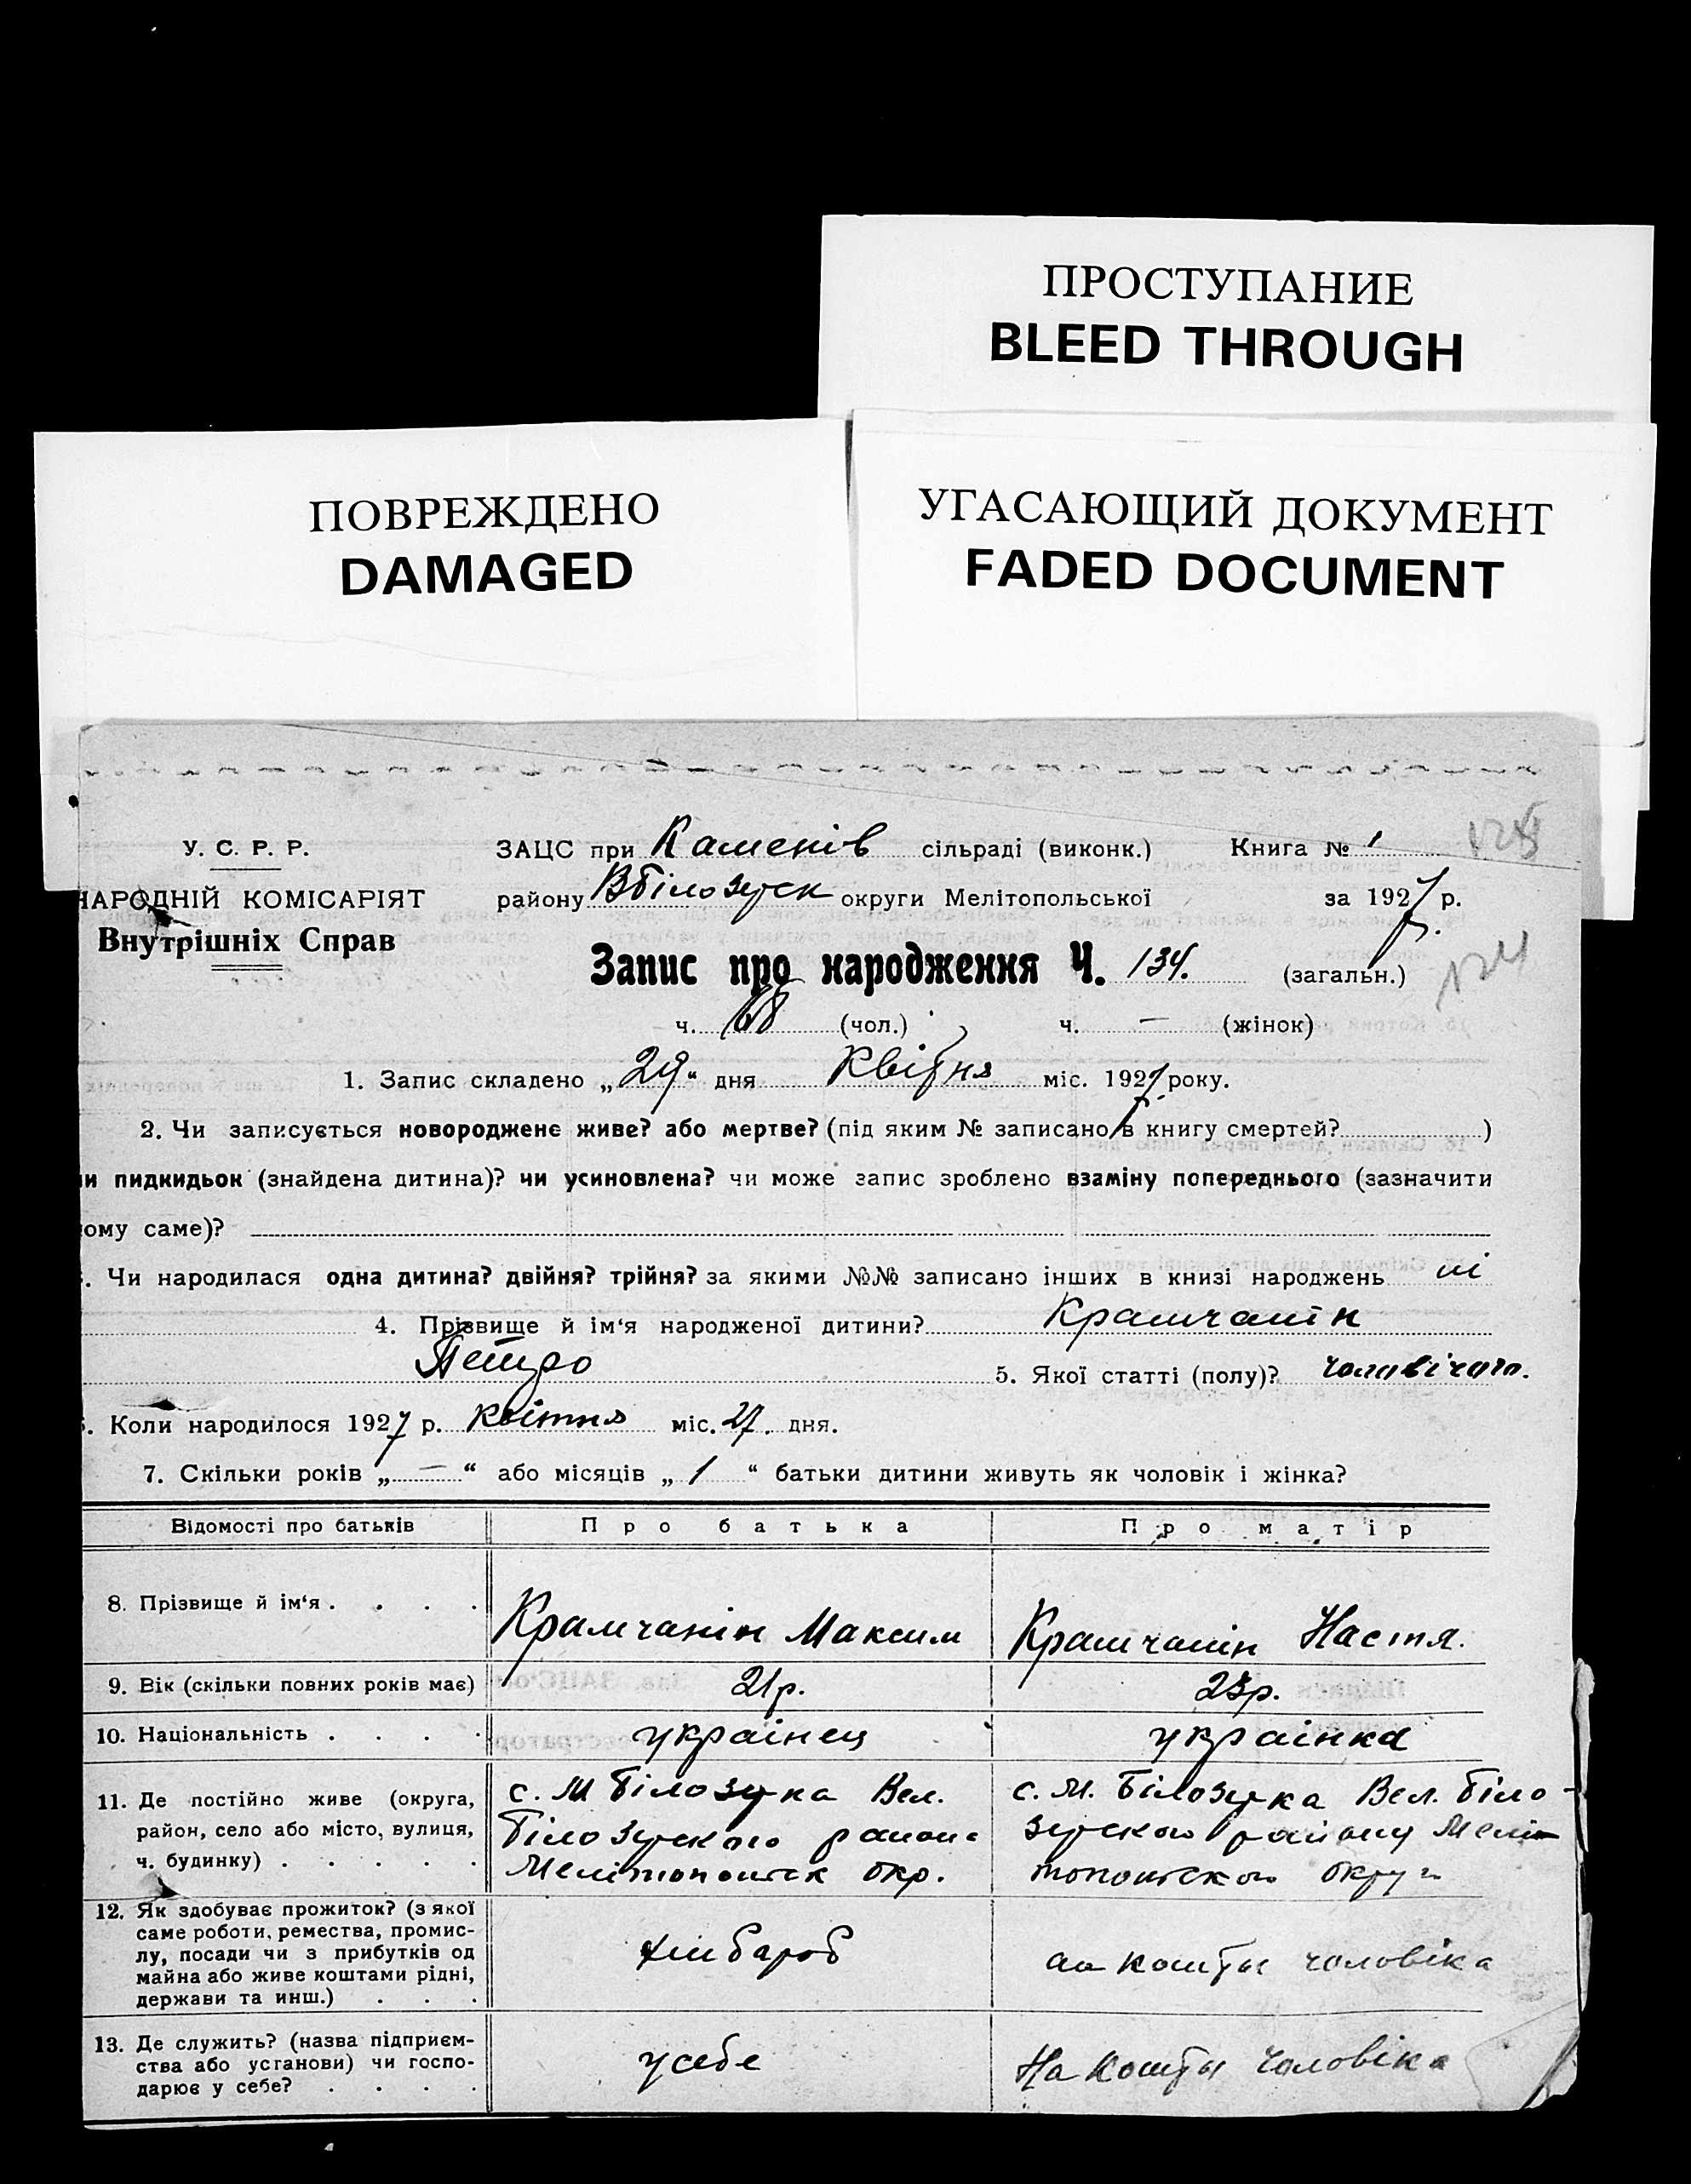 ПРОСТУПАНИЕ
BLEED THROUGH
ПОВРЕЖДЕНО
DAMAGED
УГАСАЮЩИЙ ДОКУМЕНТ
FADED DOCUMENT
У. С. Р. Р.
ЗАЦС при Каменів сільраді (виконк.) Книга № 1
НАРОДНІЙ КОМІСАРІЯТ
району ВБілозерск округи Мелітопольської за 1927 р.
Внутрішніх Справ
Запис про народження Ч. 134. (загальн.)
124
ч. 68 (чол.) ч. — (жінок)
1. Запис складено „29“ дня Квітня міс. 1927 року.
2. Чи записується новороджене живе? або мертве? (під яким № записано в книгу смертей? )
чи пидкидьок (знайдена дитина)? чи усиновлена? чи може запис зроблено взаміну попереднього (зазначити
ому саме)?
. Чи народилася одна дитина? двійня? трійня? за якими №№ записано інших в книзі народжень ні
4. Прізвище й ім‘я народженої дитини? Крамчанін
Петро 5. Якої статті (полу)? чоловічого.
. Коли народилося 1927 р. Квітня міс. 27. дня.
7. Скільки років „ — “ або місяців „ 1 “ батьки дитини живуть як чоловік і жінка?
Відомості про батьків Про батька Про матір
8. Прізвище й ім‘я . . . . Крамчанін Максим Крамчанін Настя.
9. Вік (скільки повних років має) 21р. 23р.
10. Національність . . . . українец українка
11. Де постійно живе (округа, район, село або місто, вулиця, ч. будинку) . . . . .
с. М Білозерка Вел.
Білозерского района
Мелітопольск окр.
с. М. Білозерка Вел. Біло-
зерского району Мелі-
топольского округи
12. Як здобуває прожиток? (з якої
саме роботи, ремества, промис-
лу, посади чи з прибутків од
майна або живе коштами рідні,
держави та инш.) . . .
хлібароб
на кошты чоловіка
13. Де служить? (назва підприєм-
ства або установи) чи госпо-
дарює у себе? . . . .
у себе
На кошты чоловіка